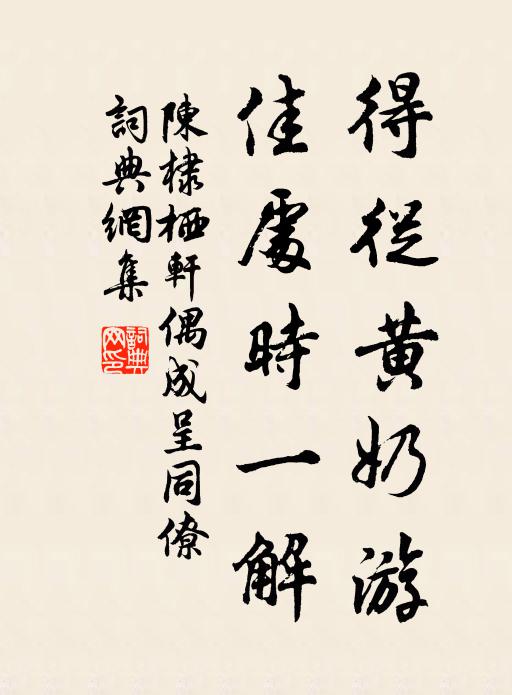 得從黃奶游
佳處時一解
陳棣栖軒偶成呈同僚
詞典網集
詞典網印